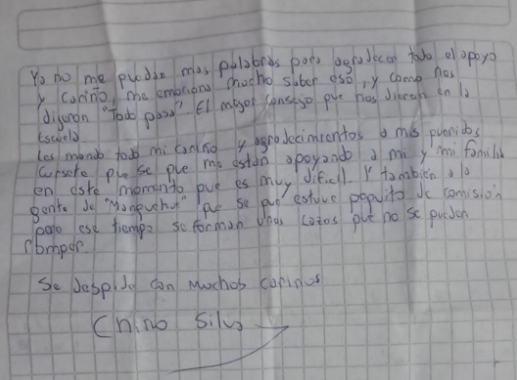 Ya no me quedan mas palabras para agradecer todo el apoyo
y cariño, me emociona mucho saber eso, y como nos
dijeron "Todo pasa". El mejor consejo que nos dieron en la
Escuela
Les mando todo mi cariño y agradecimientos a mis queridos
Cursete que se que me estan apoyando a mi y mi familia
en este momento que es muy dificil. Y tambien a la
gente de "Manquehue" que se que estuve poquito de comision
pero ese tiempo se forman unos lazos que no se pueden
romper.
Se despide con muchos cariños
Chino Silva